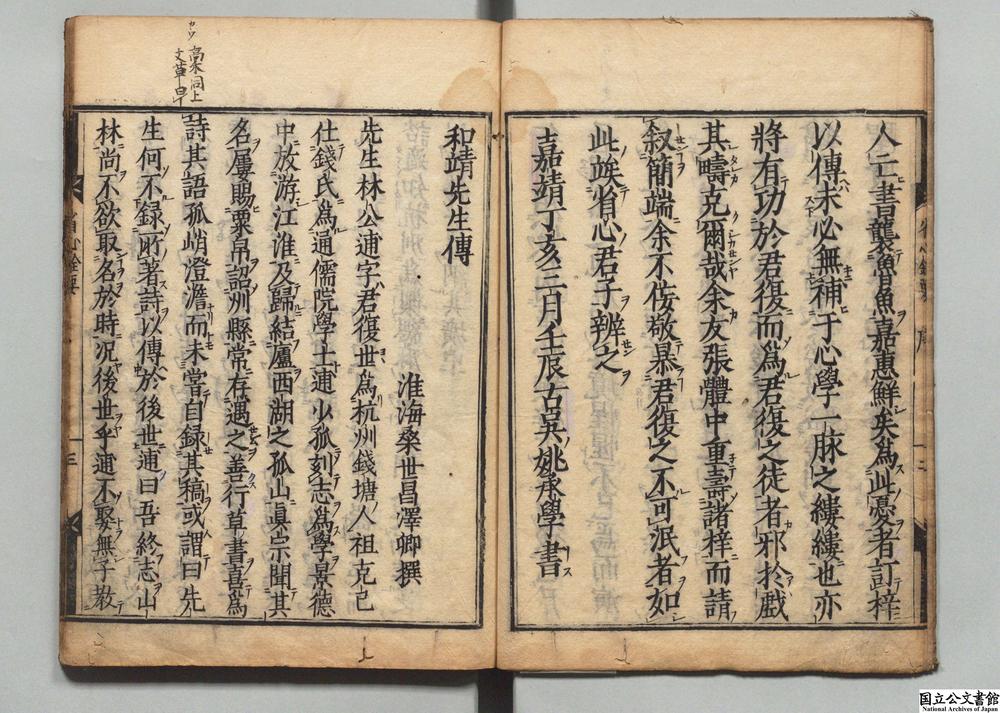 人亡書襲魯魚嘉惠鮮矣為此憂者訂梓
以傳未必無補于心學一脉之縷縷也亦
將有功於君復而為君復之徒者邪於戲
其疇克爾哉余友張體中重壽諸梓而請
叙簡端余不佞敬慕君復之不可泯者如
此竢省心君子辨之
嘉靖丁亥三月壬辰古吳姚承學書
和靖先生傳
淮海桑世昌澤卿撰
先生林公逋字君復世為杭州錢塘人祖克己
仕錢氏為通儒院學士逋少孤刻志為學景德
中放游江淮及歸結廬西湖之孤山真宗聞其
名屢賜粟帛詔州縣常存遇之善行草書喜為
詩其語孤峭澄澹而未嘗自録其稿或謂曰先
生何不録所著詩以傳於後世逋曰吾終志山
林尚不欲取名於時況後世乎逋不娶無子教
省心詮要
三
国立公文書館
National Archives of Japan